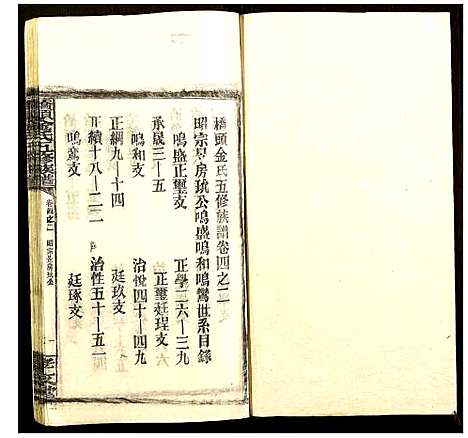 橋頭金氏五修族譜卷四之二
昭宗昱房玧公鳴盛鳴和鳴鸞世系目錄
鳴盛正璽支
承晟三–五
正學二六–三九
正璽廷珵支
鳴和支
正綱九–十四
治悅四十–四九
廷玖支
正續十八–二一
治性五十–五二
鳴鸞支
廷琢支
橋頭金氏五修族譜
卷四之二